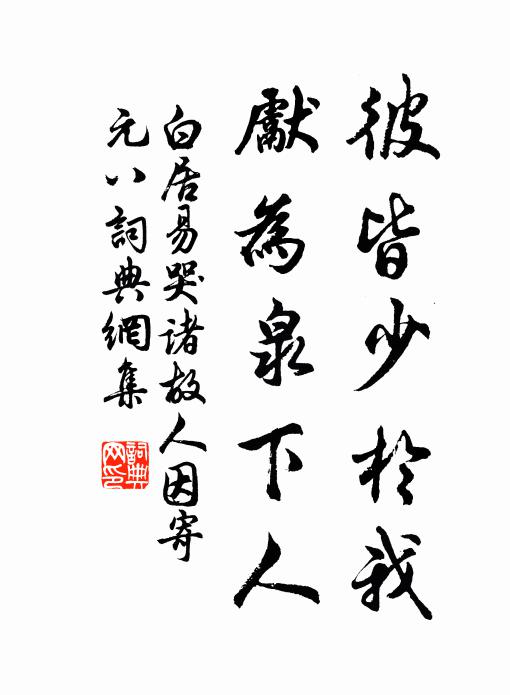 彼皆少於我
獻為泉下人
白居易哭诸故人因寄
元八詞典網集
詞典網印